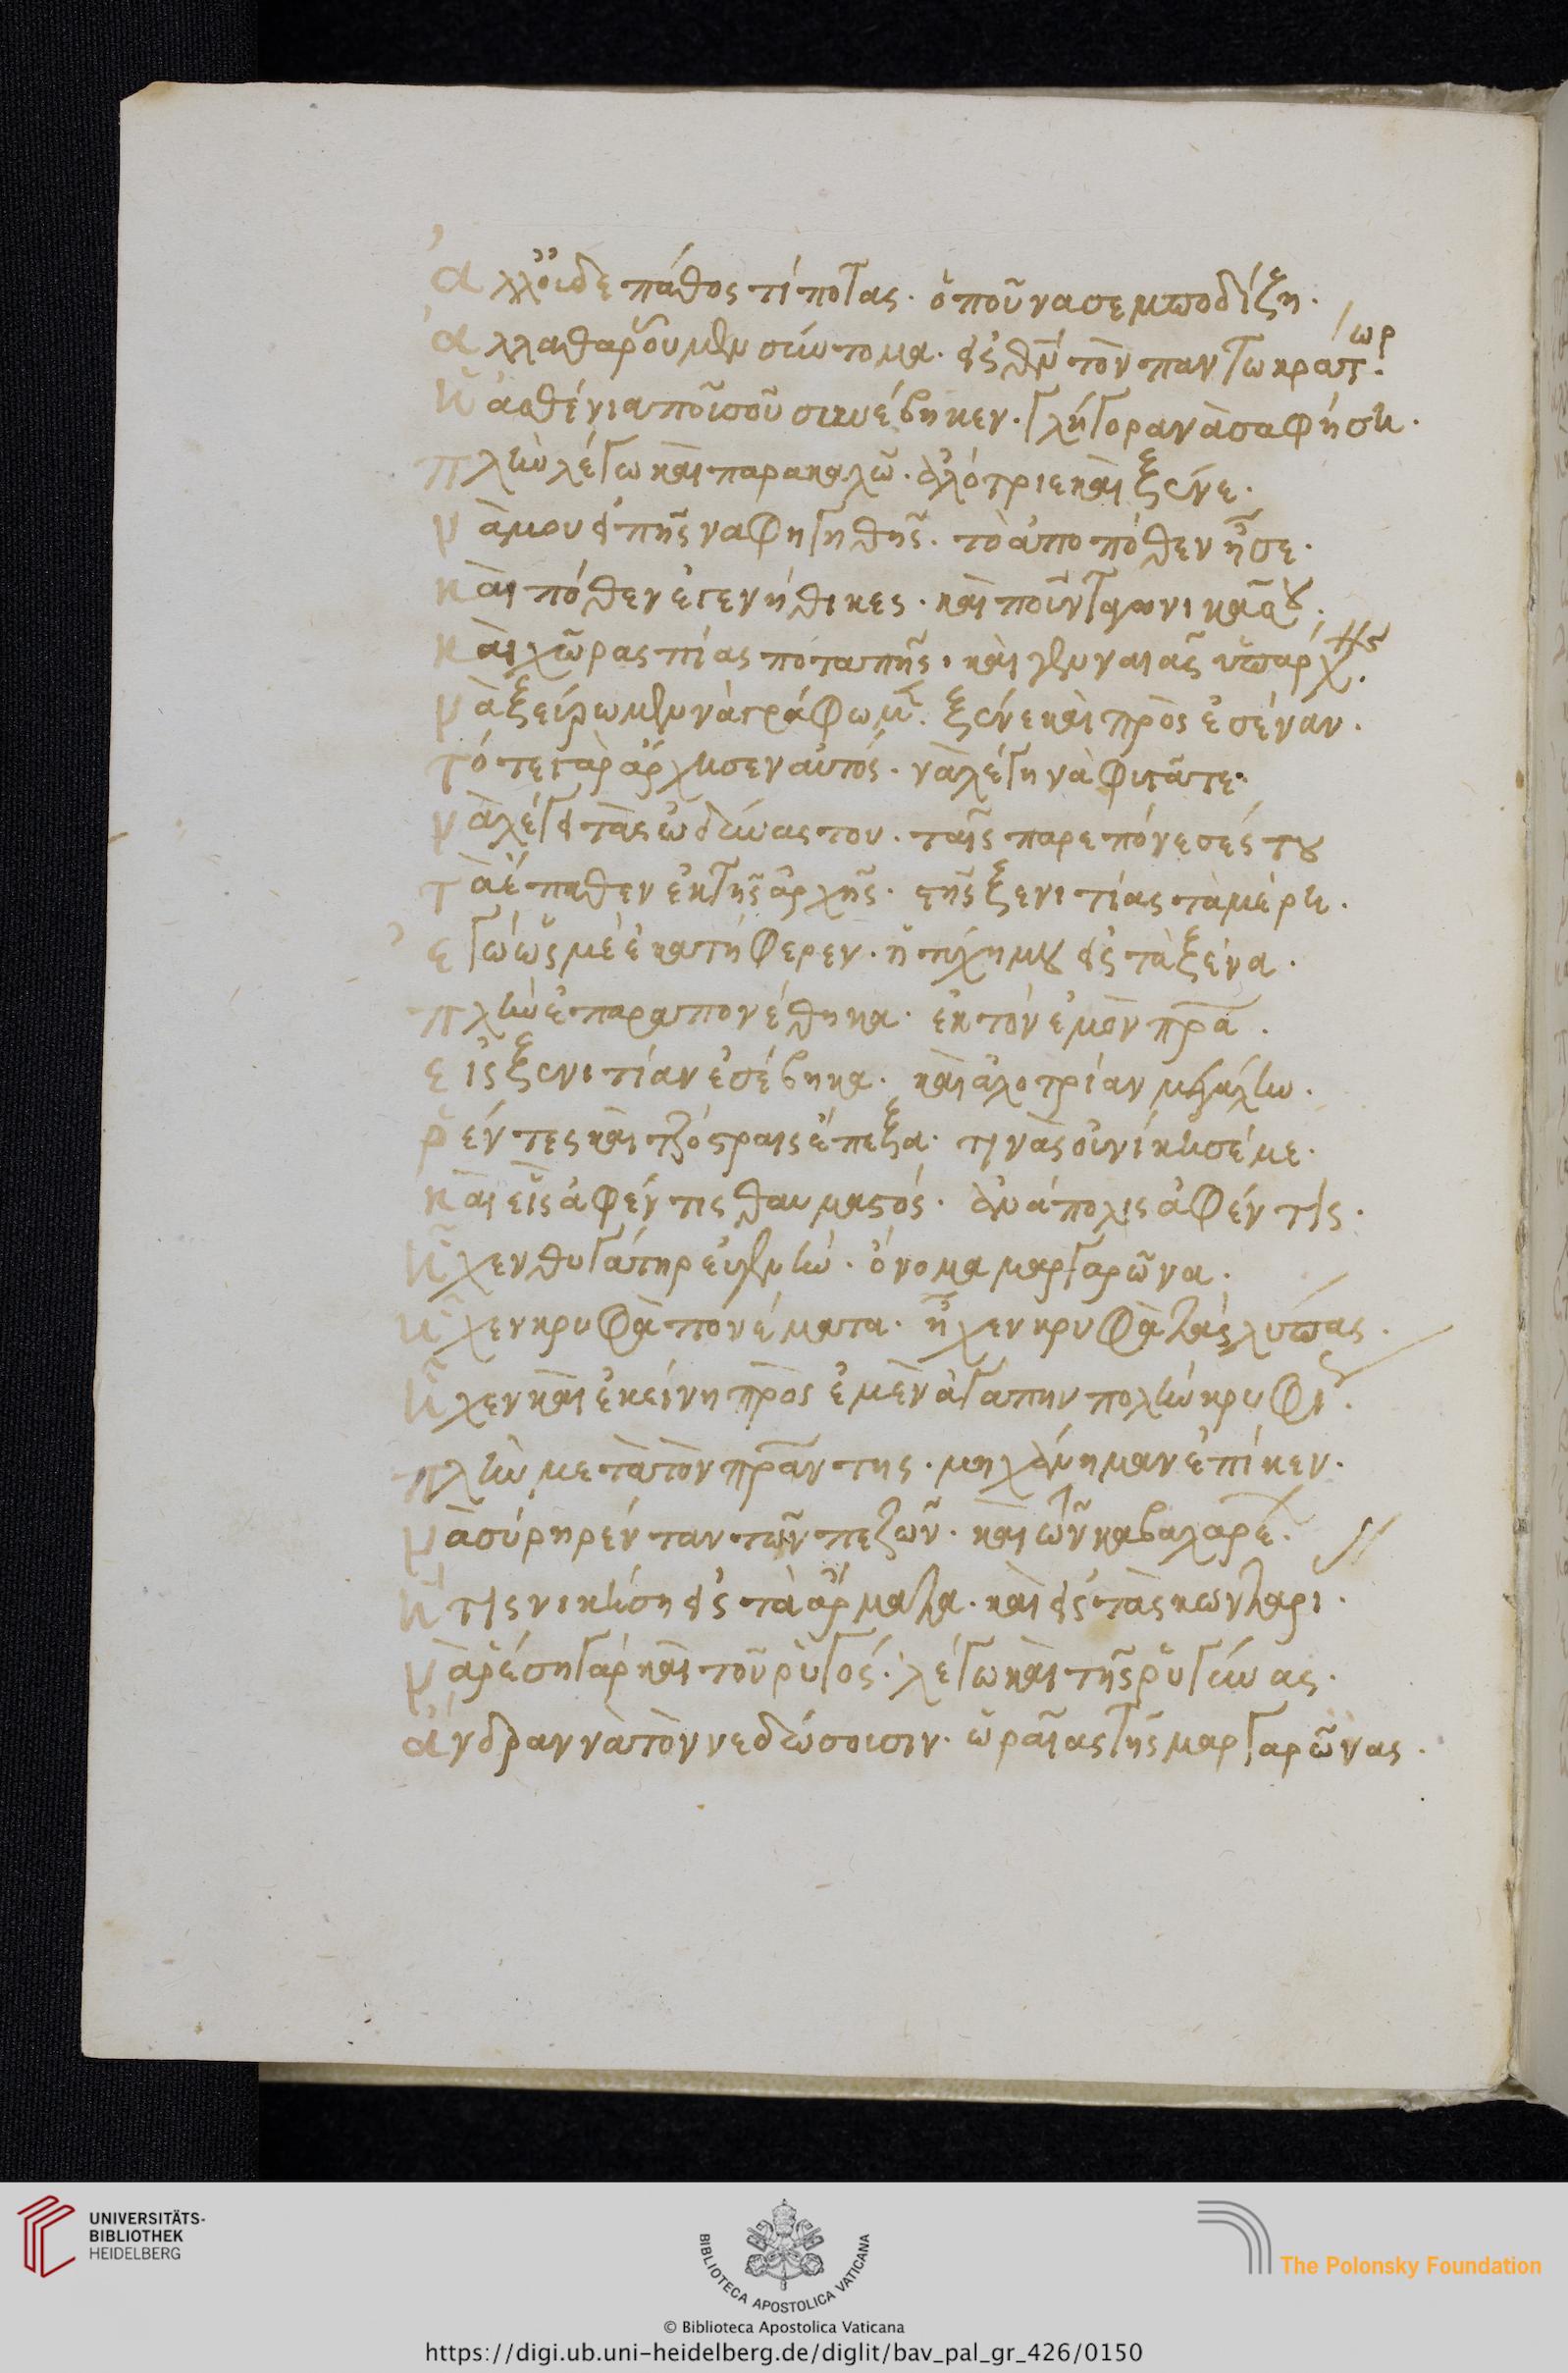 ἀλλ' οἶδε πάθος τίποτας. ὁποῦ να σε μποδίζη.
ἀλλα θαρῶ οὖν σύντομα. εἰς θν τὸν παντωκράτωρ
ἢ ἀσθένια ποῖ σοῦ συνέβηκεν. γλήγορα νὰ σ' ἀφήση.
πλὴν λέγω καὶ παρακαλῶ. ἀλότριε καὶ ξένε.
νὰ μου εἰπῆς να φηγηθῆς. τὸ ἀπο πόθεν ἦσε.
καὶ πόθεν ἐγενήθικες. καὶ ποῦν
καὶ χώρας πίας ποταπῆς. καὶ γενναιᾶς ὑπάρχης.
νὰ ξεύρω μὲν νὰ γράφω με. ξένε καὶ πρὸς ἐσέναν.
τότε γὰρ ἄρχησεν αὐτός. νὰ λέγη νὰ φιγᾶτε.
νὰ λέγει τὰς ὠδύνας του. ταῖς παρεπόνεσές του
τὰ ἔπαθεν ἐκ τῆς ἀρχῆς. τῆς ξενιτίας τὰ μέρη.
ἐγὼ ὡς μὲ ἐκατήφερεν. ἡ τύχη μου εἰς τὰ ξένα.
πλὴν ἐπαραπονέθηκα. ἐκ τὸν ἐμὸν πρα.
εἰς ξενιτίαν ἐσέβηκα. καὶ ἀλοτρίαν μεγάλην.
ρέντες καὶ τζόστραις ἔπεξα. τινὰς οὐ νίκησέ με.
καὶ εἷς ἀφέντις θαυμαστός.
ἦχεν θυγάτηρ εὐγενήν. ὄνομα μαργαρώνα.
ἦχεν κρυφὰ πονέματα. ἦχεν κρυφὰ τὰς λύπας.
ἦχεν καὶ ἐκείνη πρὸς ἐμὲν ἀγάπην πολὴν κρυφι
πλὴν μετὰ τὸν πραν της. μηχάνημαν ἐπίκεν.
νὰ σύρη ρένταν τῶν πεζῶν. καὶ τῶν καβαλαρέ.
ἤτης νικήση εἰς τὰ ἄρματα. καὶ εἰς τὰς κωνταρι.
νὰ ρέση γὰρ καὶ τοῦ ρυγός. λέγω καὶ τῆς ρυγίνας.
ἄνδραν νὰ τὸν νε δώσοισιν. ὡραίας τῆς μαργαρώνας.
UNIVERSITÄTS-
BIBLIOTHEK
HEIDELBERG
BIBLIOTECA APOSTOLICA VATICANA
The Polonsky Foundation
© Biblioteca Apostolica Vaticana
https://digi.ub.uni-heidelberg.de/diglit/bav_pal_gr_426/0150